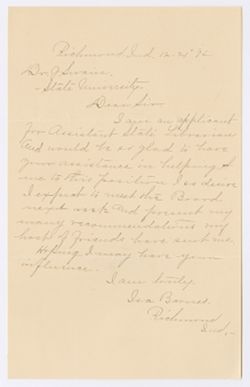 Richmond, Ind. 12-21-'92
Dr. J Swain.
State University.
Dear Sir
I am an applicant
for Assistant State Librarian
and would be so glad to have
your assistance in helping
me to this position I so desire
I expect to meet the Board
next week and present my
many recommendations my
host of friends have sent me.
Hoping I may have your
influence.
I am truly,
Ida Barnes
Richmond
Ind.